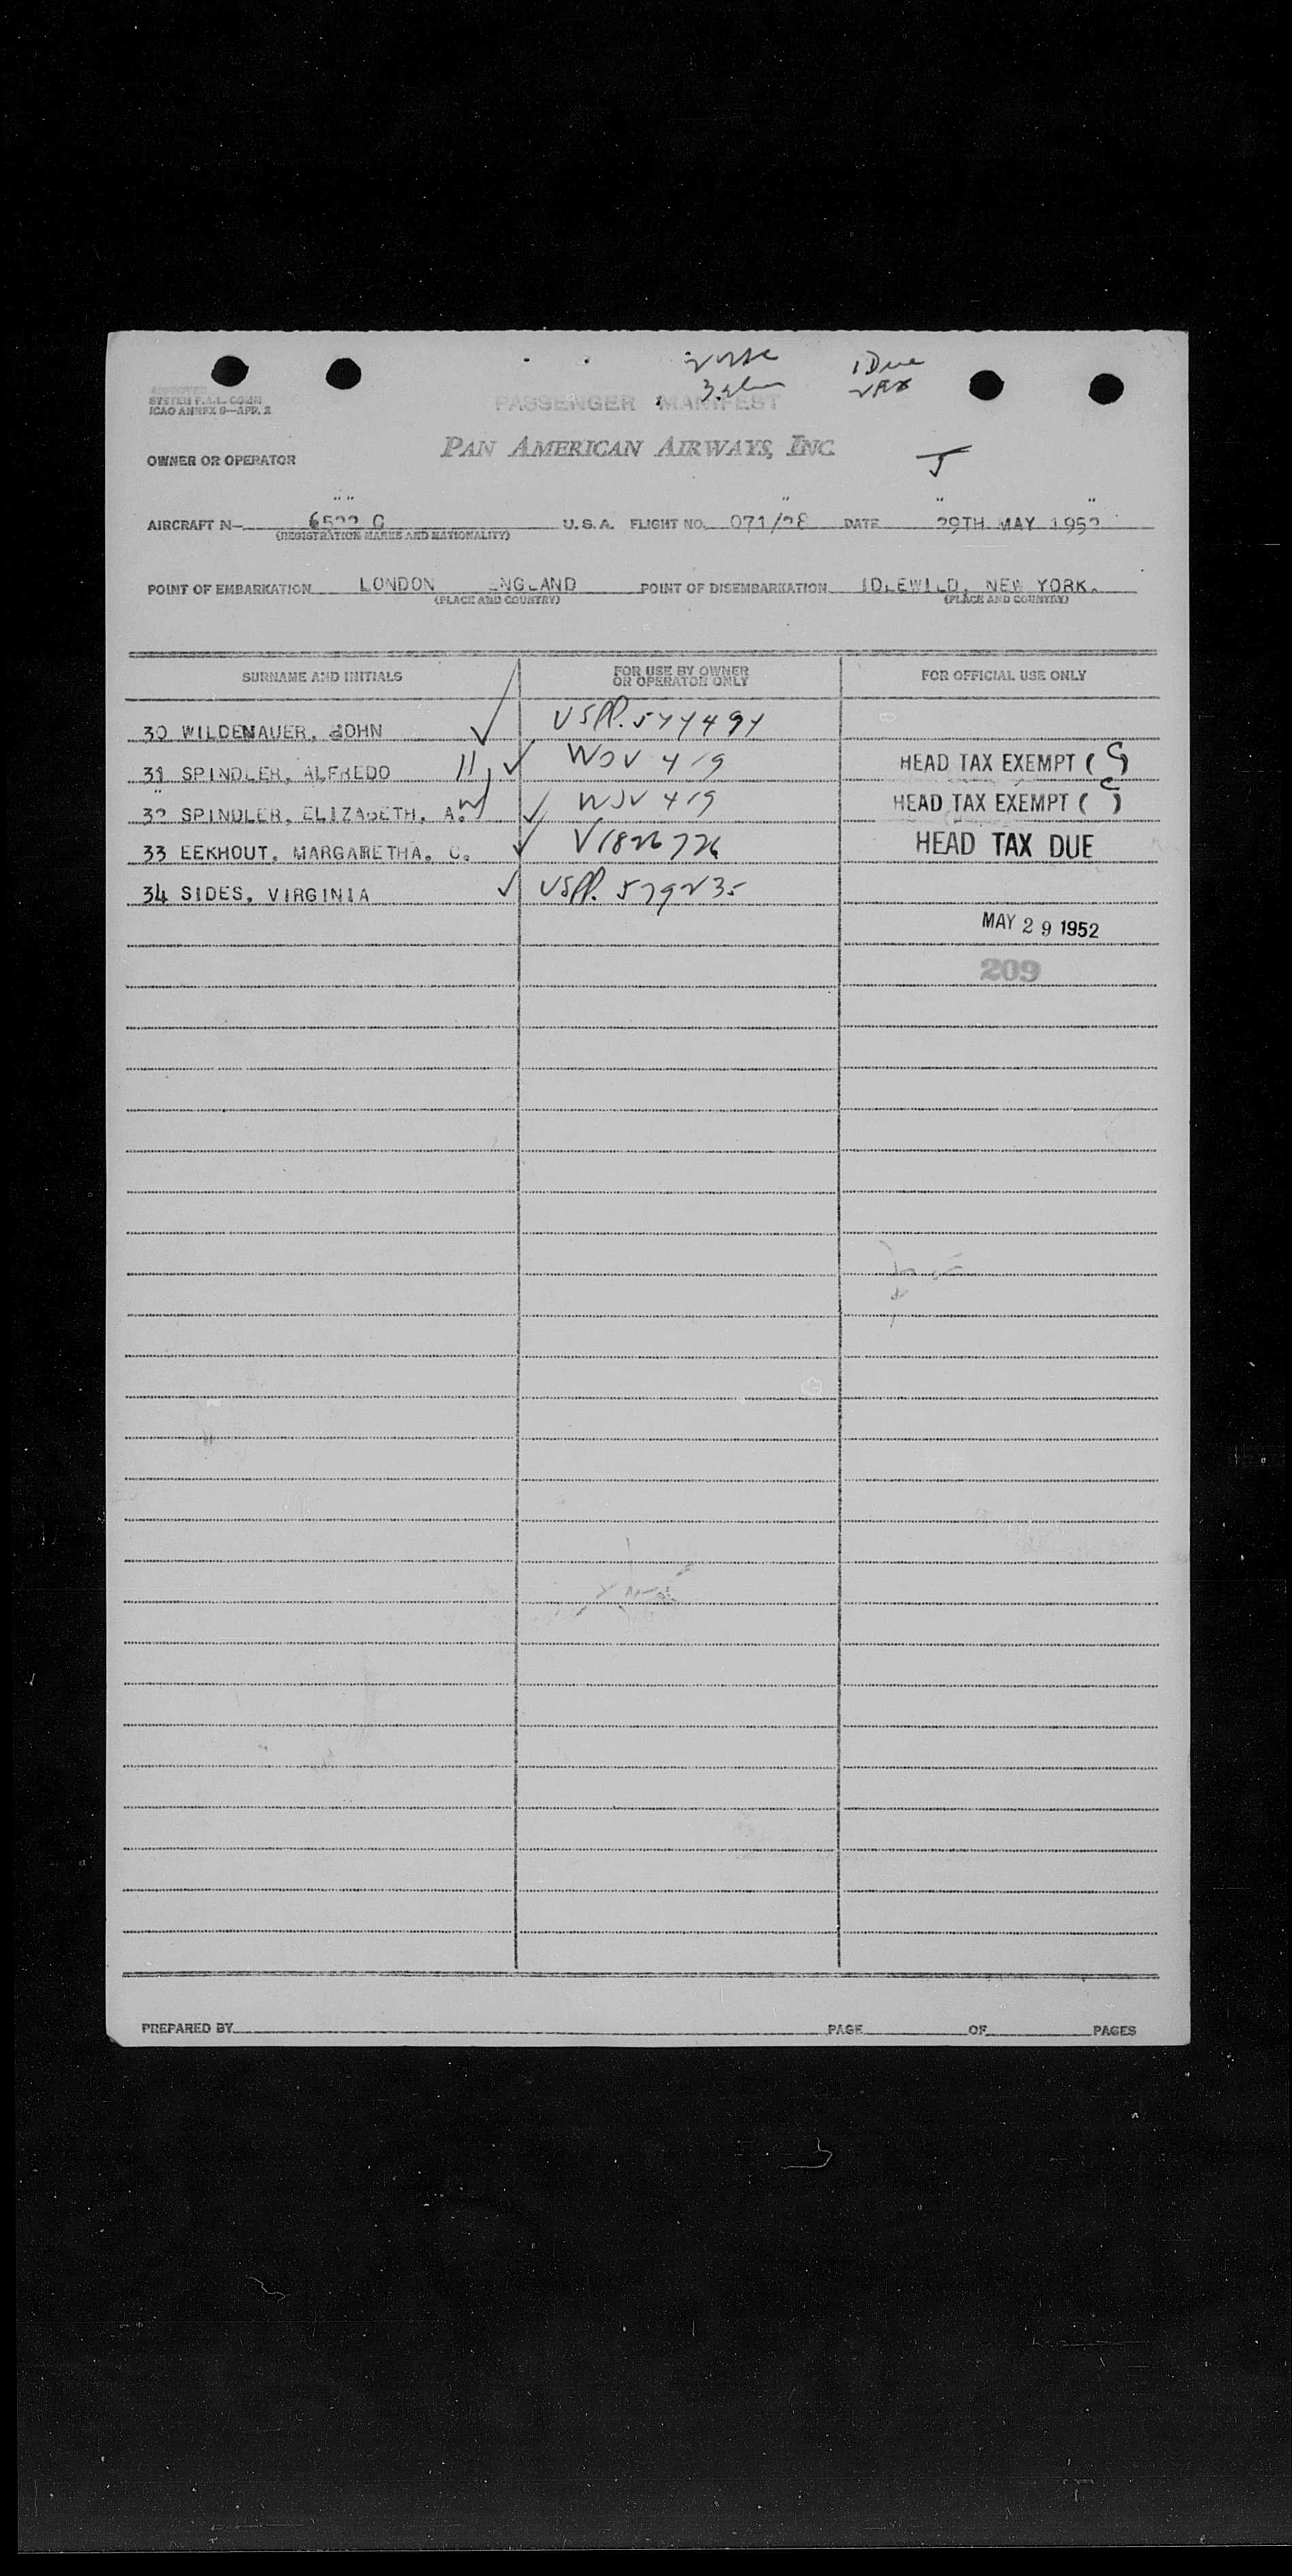 1 Due
APPROVED
SYSTEM F.A.L. COMM
ICAO ANNEX 9—APP. 2
PASSENGER MANIFEST
OWNER OR OPERATOR PAN AMERICAN AIRWAYS, INC.
AIRCRAFT N— 6522 C U.S.A. FLIGHT NO. 071/28 DATE 29TH MAY 1952
(REGISTRATION MARKS AND NATIONALITY)
POINT OF EMBARKATION LONDON ENGLAND POINT OF DISEMBARKATION IDLEWILD, NEW YORK.
(PLACE AND COUNTRY) (PLACE AND COUNTRY)
SURNAME AND INITIALS FOR USE BY OWNER OR OPERATOR ONLY FOR OFFICIAL USE ONLY
30 WILDENAUER, JOHN USPP.
31 SPINDLER, ALFREDO 419 HEAD TAX EXEMPT ( )
32 SPINDLER, ELIZABETH, A. 419 HEAD TAX EXEMPT ( )
33 EEKHOUT, MARGARETHA. C. V1826726 HEAD TAX DUE
34 SIDES, VIRGINIA USPP. 579235
MAY 29 1952
209
PREPARED BY PAGE OF PAGES